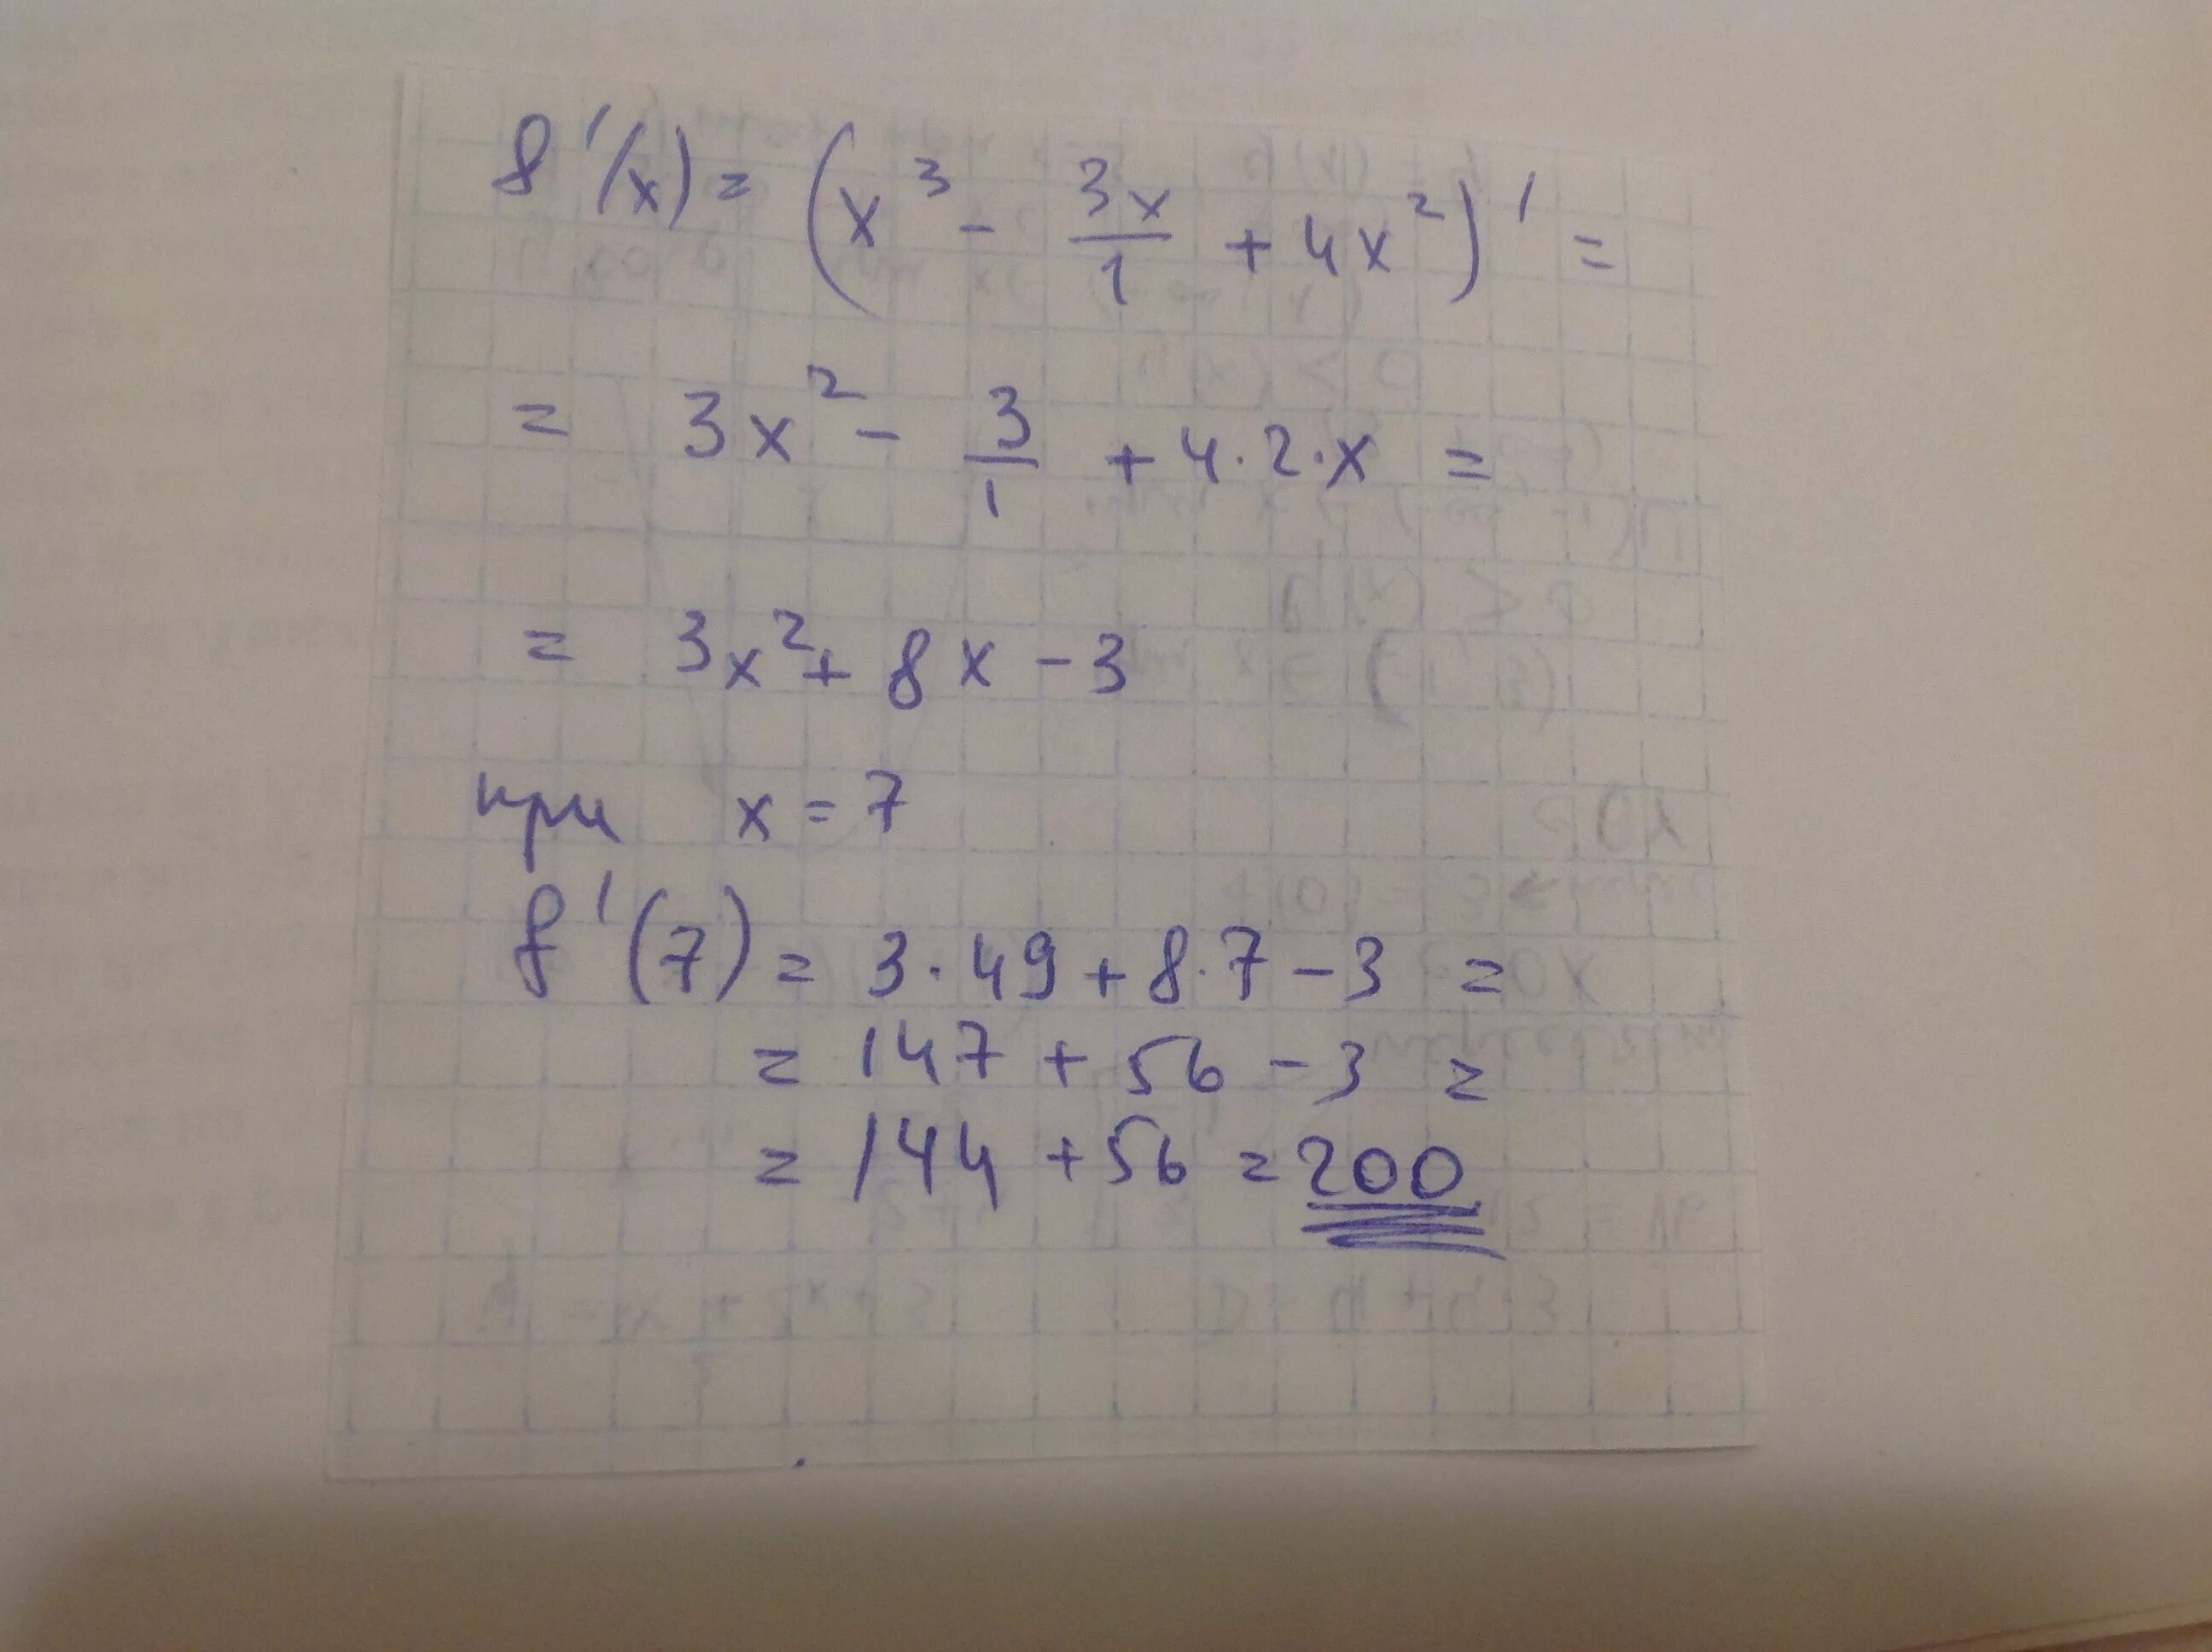 f'(x) = (x³ - 3x/1 + 4x²)' =
= 3x² - 3/1 + 4·2·x =
= 3x² + 8x - 3
при x = 7
f'(7) = 3·49 + 8·7 - 3 =
= 147 + 56 - 3 =
= 144 + 56 = 200